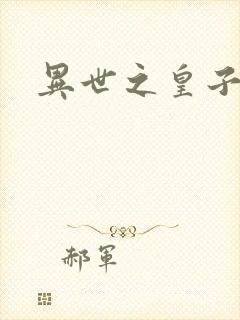 異世之皇子
郝軍